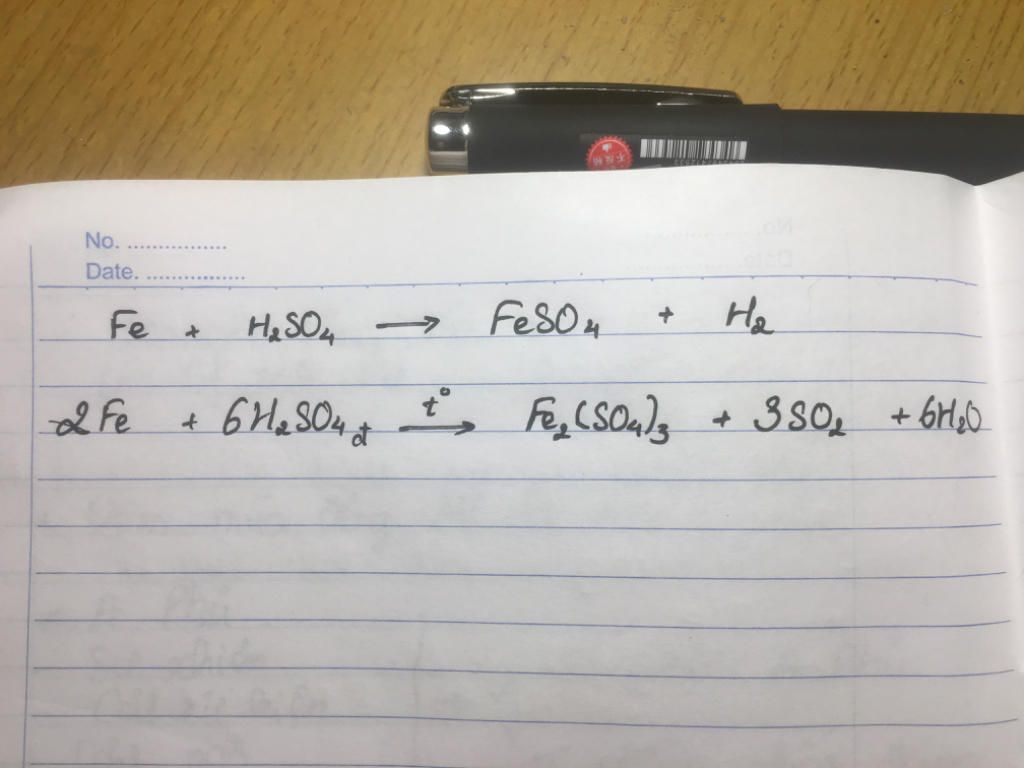 No. ................
Date. ................
Fe + H₂SO₄ → FeSO₄ + H₂
2Fe + 6H₂SO₄ đ t° → Fe₂(SO₄)₃ + 3SO₂ + 6H₂O